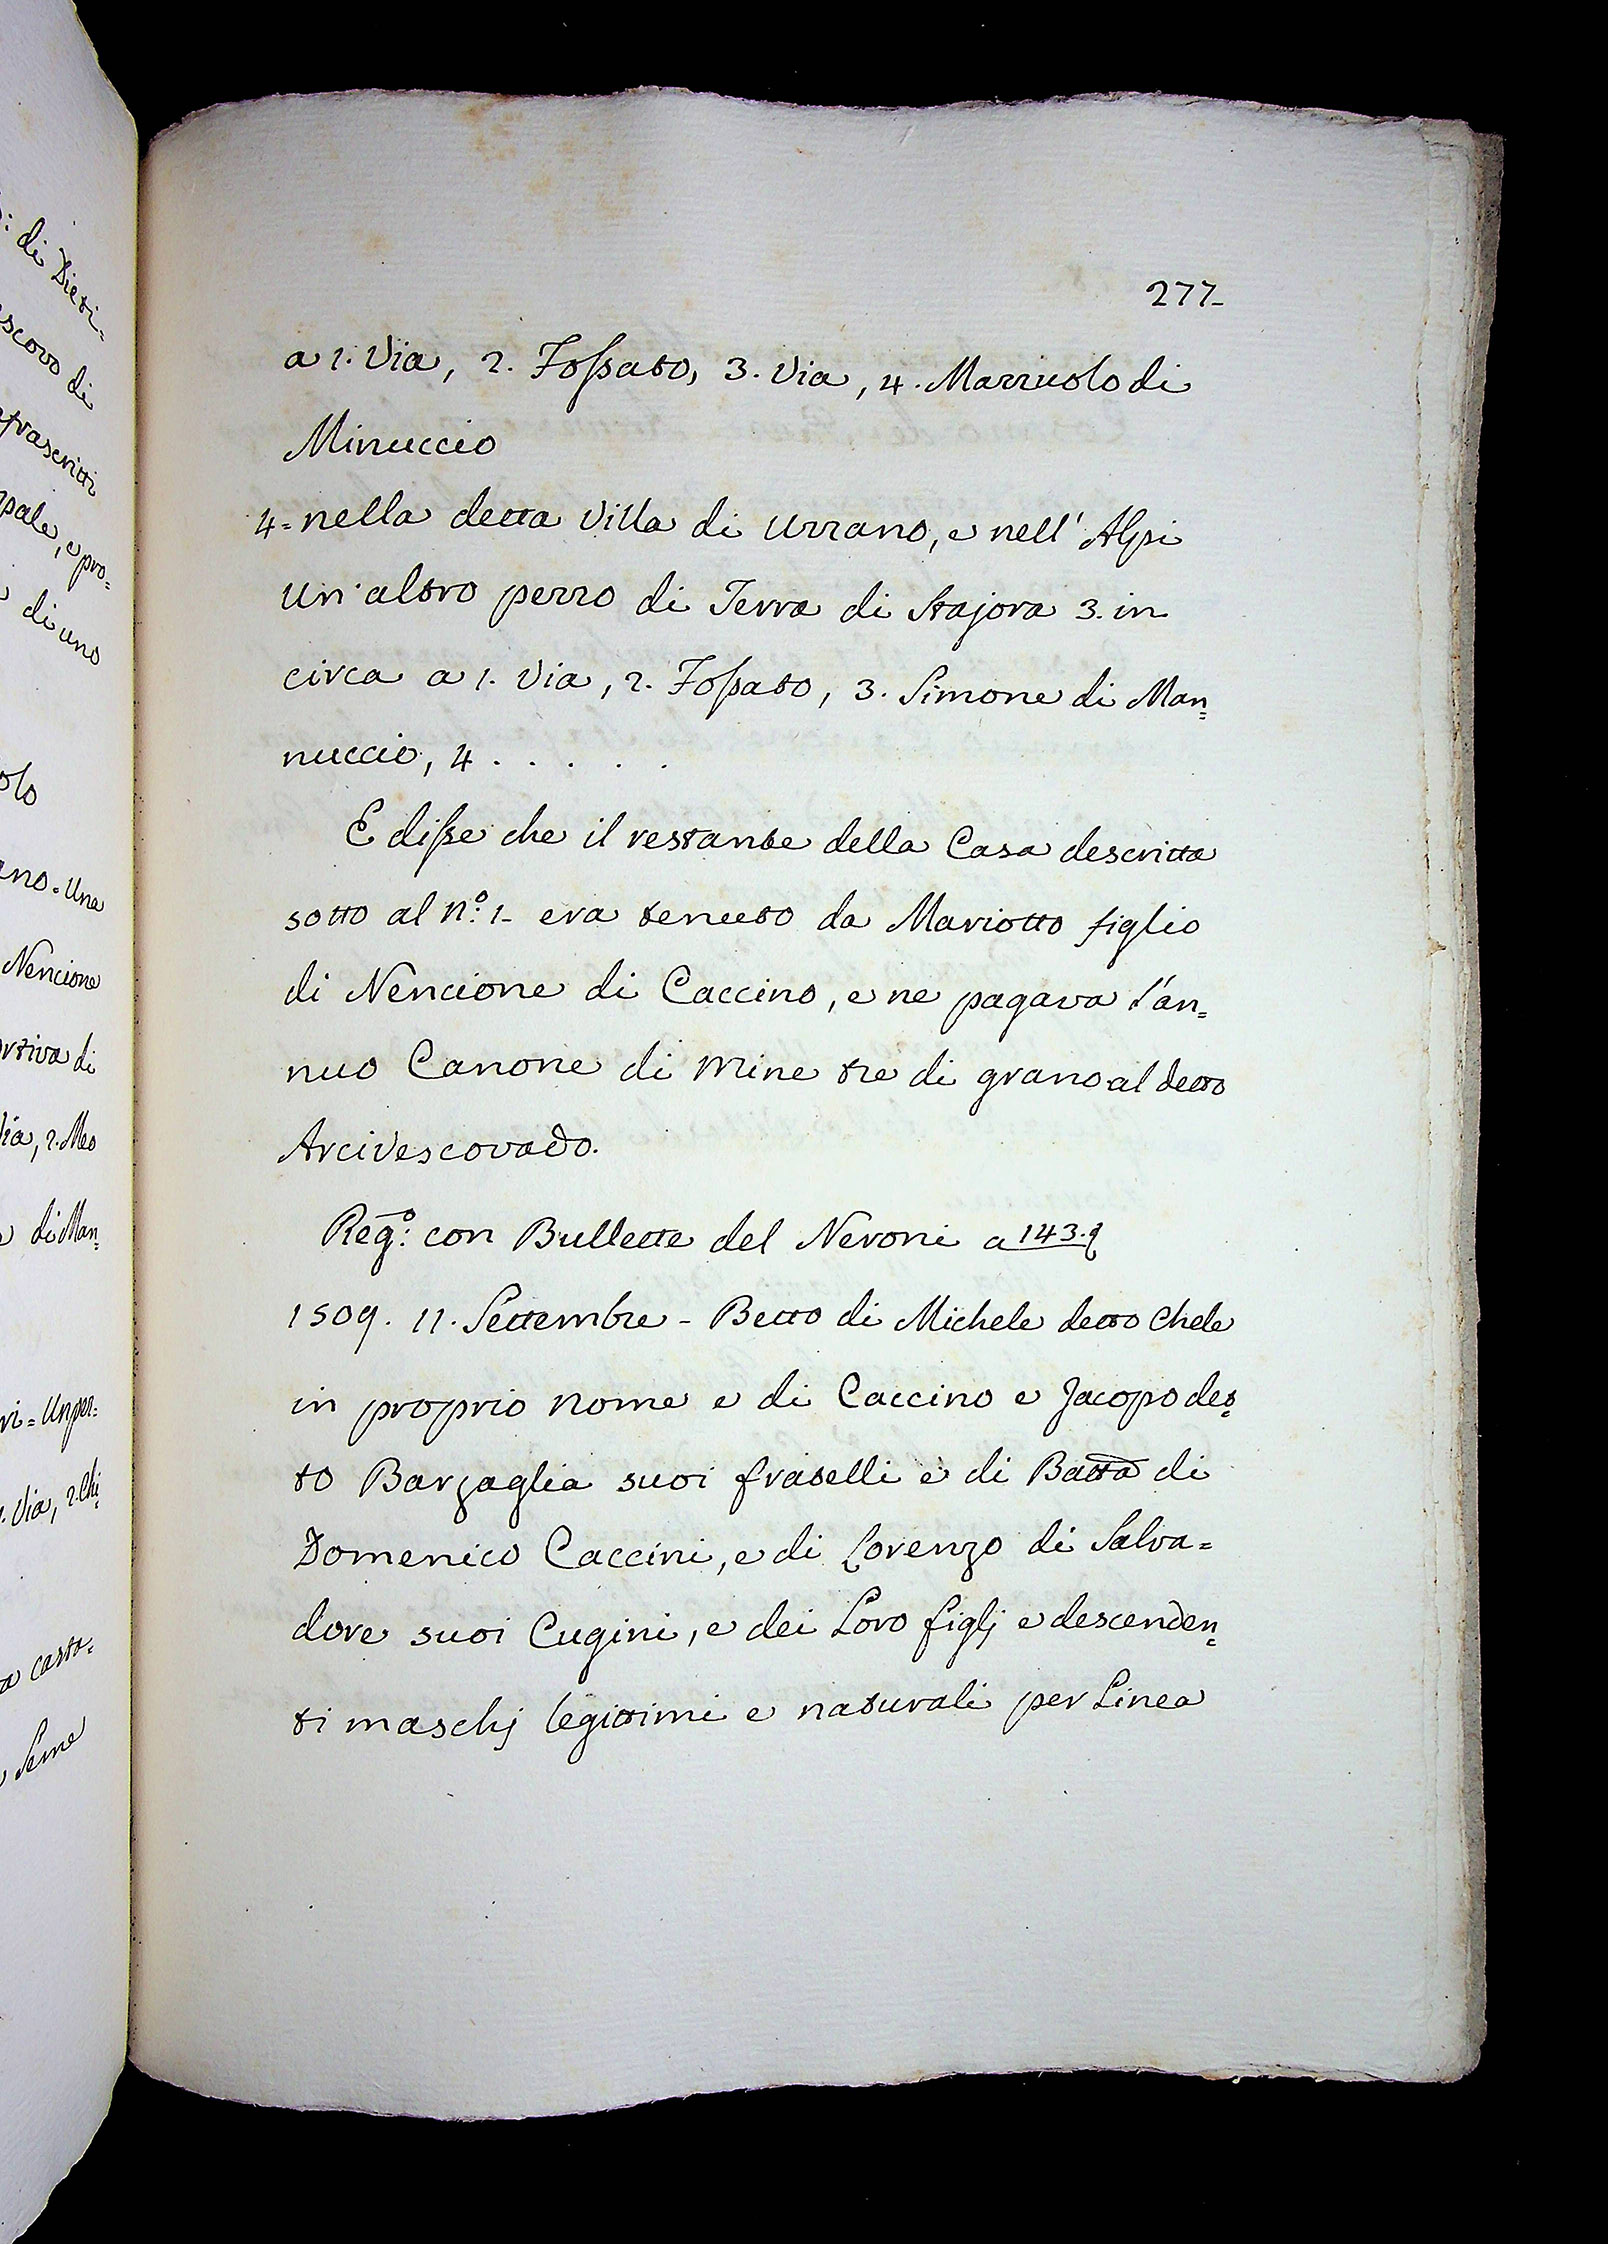 : di Dieti-
escovo di
prascritti
pale, e pro=
di uno
olo
ano. Una
Nencione
ortiva di
Via, 2. Meo
di Man=
ri = Un pez=
. Via, 2. Chi=
a casto=
Seme
277-
a 1. Via, 2. Fossato, 3. Via, 4. Mazzuolo di
Minuccio
4= nella detta Villa di Uzzano, e nell' Alpi
Un' altro pezzo di Terra di Stajora 3. in
circa a 1. Via, 2. Fossato, 3. Simone di Man=
nuccio, 4 . . . . .
E disse che il restante della Casa descritta
sotto al N.º 1- era tenuto da Mariotto figlio
di Nencione di Caccino, e ne pagava l'an=
nuo Canone di Mine tre di grano al detto
Arcivescovado.
Reg.º con Bullette del Neroni a 143.
1509. 11. Settembre - Betto di Michele detto Chele
in proprio nome e di Caccino e Jacopo det=
to Barzaglia suoi fratelli e di Batta di
Domenico Caccini, e di Lorenzo di Salva=
dore suoi Cugini, e dei Loro figlj e descenden=
ti maschj legittimi e naturali per Linea